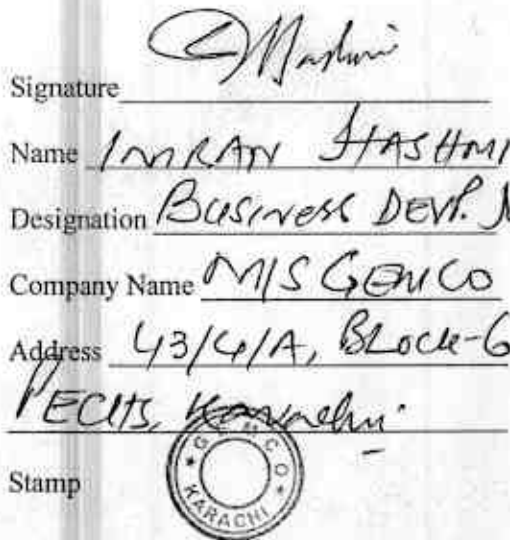 Signature Hashmi
Name IMRAN HASHMI
Designation BUSINESS DEVP. M
Company Name M/S GEMCO
Address 43/4/A, BLOCK-6
PECHS, Karachi.
Stamp
GEMCO
KARACHI